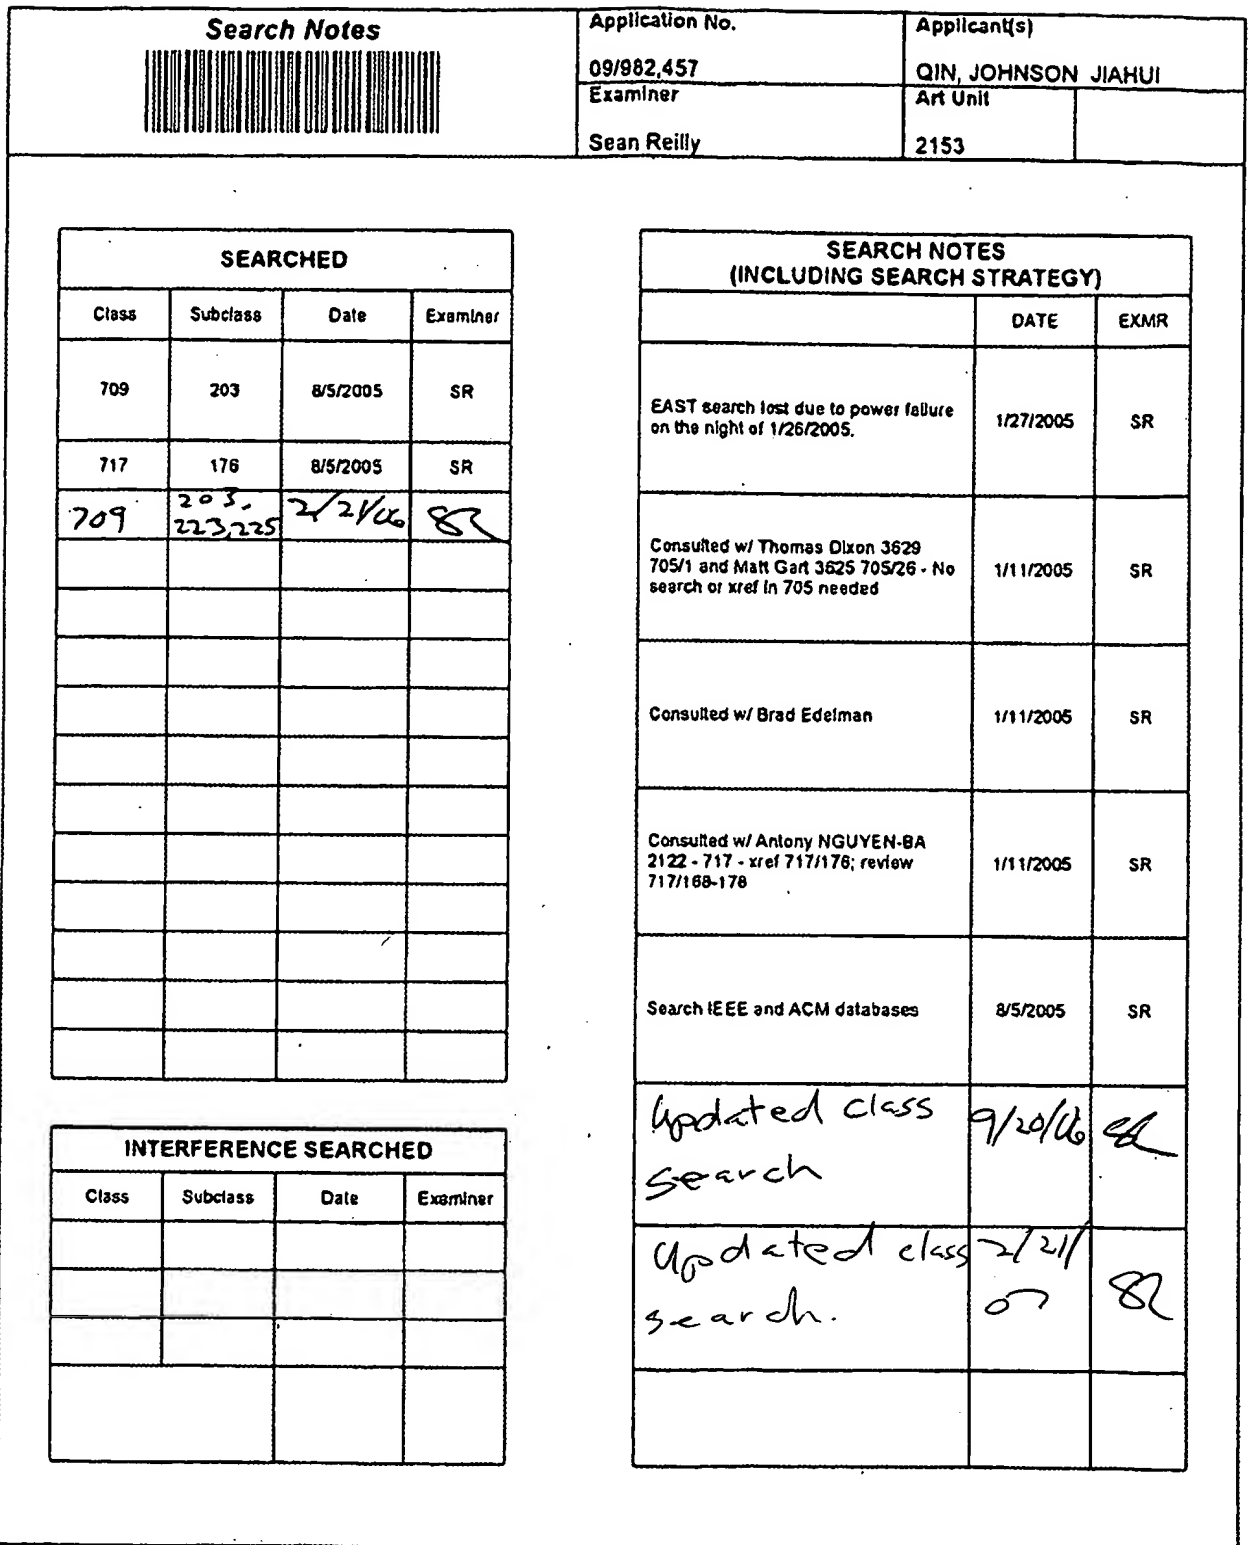 Search Notes
Application No.
Applicant(s)
09/982,457
QIN, JOHNSON JIAHUI
Examiner
Art Unit
Sean Reilly
2153
SEARCHED
Class Subclass Date Examiner
709 203 8/5/2005 SR
717 176 8/5/2005 SR
709 203, 223,225 2/21/06 SR
INTERFERENCE SEARCHED
Class Subclass Date Examiner
SEARCH NOTES
(INCLUDING SEARCH STRATEGY)
DATE EXMR
EAST search lost due to power failure
on the night of 1/26/2005.
1/27/2005 SR
Consulted w/ Thomas Dixon 3629
705/1 and Matt Gart 3625 705/26 - No
search or xref in 705 needed
1/11/2005 SR
Consulted w/ Brad Edelman 1/11/2005 SR
Consulted w/ Antony NGUYEN-BA
2122 - 717 - xref 717/176; review
717/168-178
1/11/2005 SR
Search IEEE and ACM databases 8/5/2005 SR
Updated class
search
9/20/06 SR
Updated class
search.
2/21/
07
SR